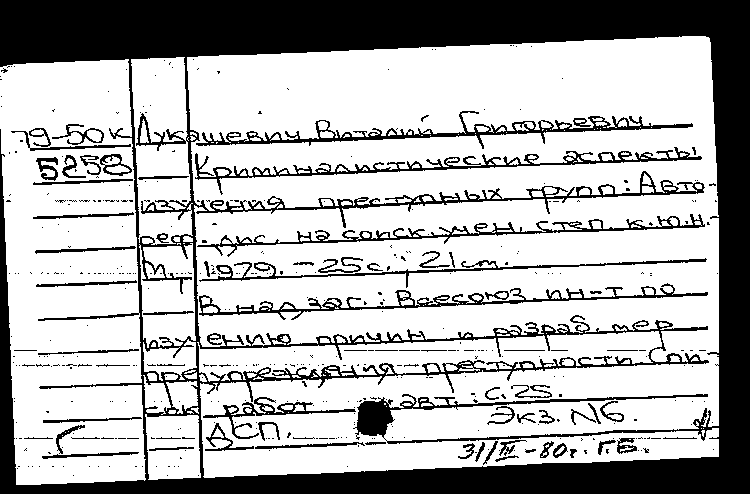 79-50к Лукашевич, Виталий Григорьевич.
5258 Криминалистические аспекты
изучения преступных групп: Авто-
реф. дис. на соиск. учен. степ. к.ю.н.-
М., 1979. - 25 с.; 21 см.
В надзаг.: Всесоюз. ин-т по
изучению причин и разраб. мер
предупреждения преступности. Спи-
сок работ авт.: с. 25.
ДСП. Экз. №6.
31/III-80г. Г.Б.